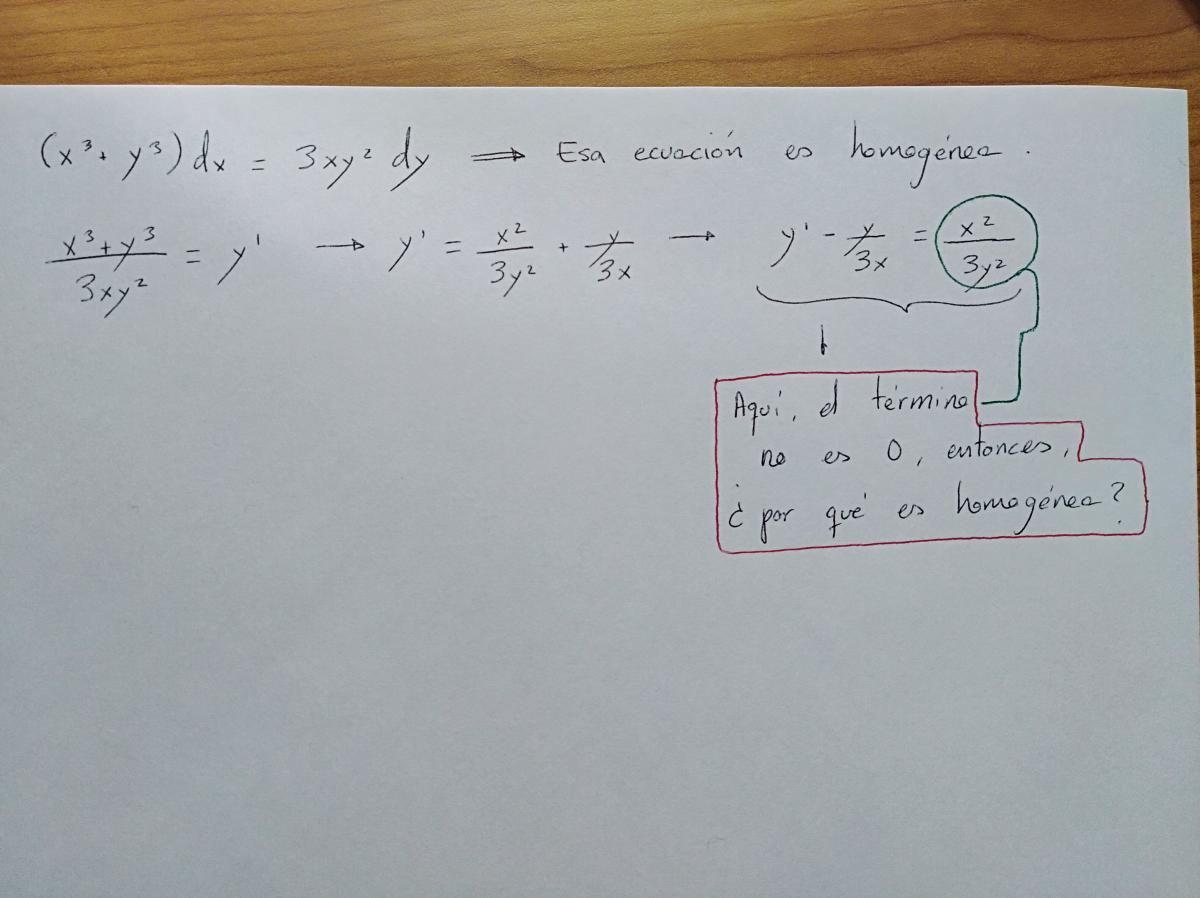 (x³ + y³) dx = 3xy² dy ⟹ Esa ecuación es homogénea.
(x³ + y³)/(3xy²) = y' → y' = x²/(3y²) + y/(3x) → y' - y/(3x) = x²/(3y²)
Aquí, el término
no es 0, entonces,
¿por qué es homogénea?